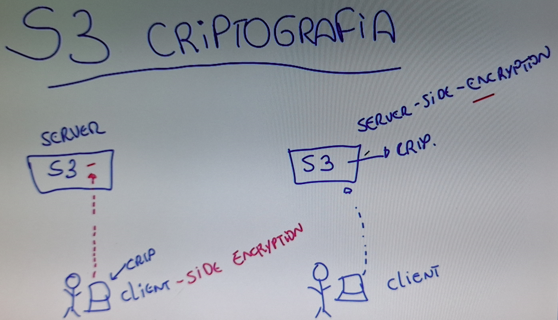 S3 CRIPTOGRAFIA
SERVER
S3
CRIP
CLIENT-SIDE ENCRYPTION
SERVER-SIDE-ENCRYPTION
S3
CRIP.
CLIENT